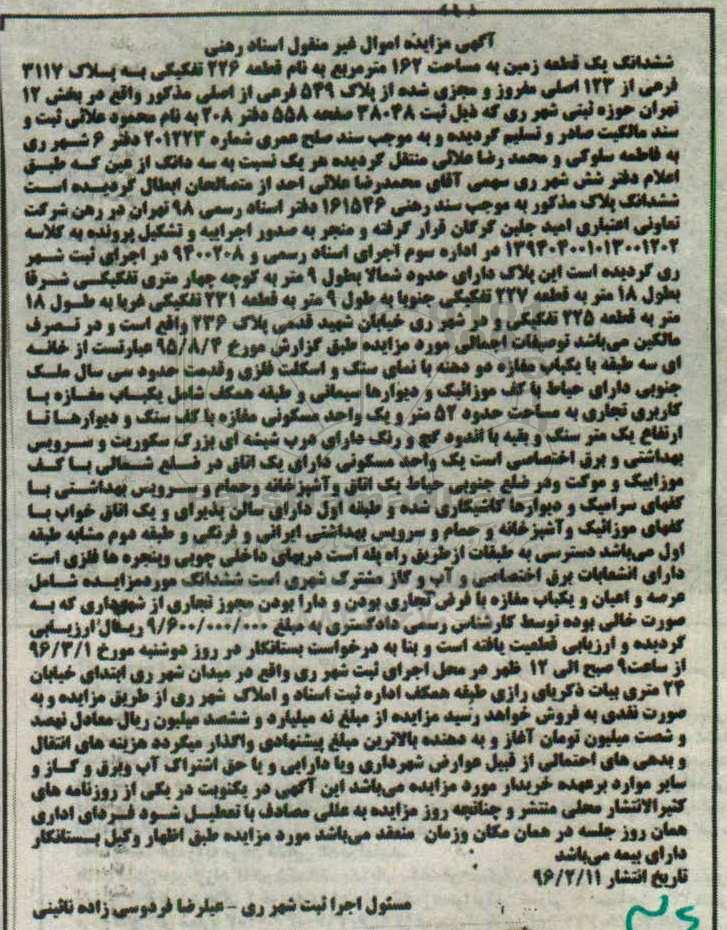 آگهی مزایده اموال غیر منقول اسناد رهنی
ششدانگ یک قطعه زمین به مساحت ۱۶۲ مترمربع به نام قطعه ۲۲۶ تفکیکی به پلاک ۳۱۱۷
فرعی از ۱۲۳ اصلی مفروز و مجزی شده از پلاک ۵۴۹ فرعی از اصلی مذکور واقع در بخش ۱۲
تهران حوزه ثبتی شهر ری که ذیل ثبت ۳۸۰۴۸ صفحه ۵۵۸ دفتر ۲۰۸ به نام محمود علائی ثبت و
سند مالکیت صادر و تسلیم گردیده و به موجب سند صلح عمری شماره ۲۰۱۲۲۳ دفتر ۶ شهر ری
به فاطمه سلوکی و محمد رضا علائی منتقل گردیده هر یک نسبت به سه دانگ از عین که طبق
اعلام دفتر شش شهر ری سهمی آقای محمدرضا علائی احد از متصالحان ابطال گردیده است
ششدانگ پلاک مذکور به موجب سند رهنی ۱۶۱۵۴۶ دفتر اسناد رسمی ۹۸ تهران در رهن شرکت
تعاونی اعتباری امید جلین گرگان قرار گرفته و منجر به صدور اجراییه و تشکیل پرونده به کلاسه
۱۳۹۴۰۴۰۰۱۰۱۳۰۰۱۲۰۲ در اداره سوم اجرای اسناد رسمی و ۹۴۰۰۲۰۸ در اجرای ثبت شهر
ری گردیده است این پلاک دارای حدود شمالا بطول ۹ متر به کوچه چهار متری تفکیکی شرقا
بطول ۱۸ متر به قطعه ۲۲۷ تفکیکی جنوبا به طول ۹ متر به قطعه ۲۳۱ تفکیکی غربا به طول ۱۸
متر به قطعه ۲۲۵ تفکیکی و در شهر ری خیابان شهید قدمی پلاک ۲۳۶ واقع است و در تصرف
مالکین می‌باشد توصیفات اجمالی مورد مزایده طبق گزارش مورخ ۹۵/۸/۴ عبارتست از خانه
ای سه طبقه با یکباب مغازه دو دهنه با نمای سنگ و اسکلت فلزی وقدمت حدود سی سال ملک
جنوبی دارای حیاط با کف موزائیک و دیوارها سیمانی و طبقه همکف شامل یکباب مغازه با
کاربری تجاری به مساحت حدود ۵۲ متر و یک واحد مسکونی مغازه با کف سنگ و دیوارها تا
ارتفاع یک متر سنگ و بقیه با اندود گچ و رنگ دارای درب شیشه ای بزرگ سکوریت و سرویس
بهداشتی و برق اختصاصی است یک واحد مسکونی دارای یک اتاق در ضلع شمالی با کف
موزاییک و موکت ودر ضلع جنوبی حیاط یک اتاق وآشپزخانه وحمام و سرویس بهداشتی با
کفهای سرامیک و دیوارها کاشیکاری شده و طبقه اول دارای سالن پذیرای و یک اتاق خواب با
کفهای موزائیک وآشپزخانه و حمام و سرویس بهداشتی ایرانی و فرنگی و طبقه دوم مشابه طبقه
اول می‌باشد دسترسی به طبقات ازطریق راه پله است دربهای داخلی چوبی وپنجره ها فلزی است
دارای انشعابات برق اختصاصی و آب و گاز مشترک شهری است ششدانگ موردمزایده شامل
عرصه و اعیان و یکباب مغازه با فرض تجاری بودن و دارا بودن مجوز تجاری از شهرداری که به
صورت خالی بوده توسط کارشناس رسمی دادگستری به مبلغ ۹/۶۰۰/۰۰۰/۰۰۰ ریال ارزیابی
گردیده و ارزیابی قطعیت یافته است و بنا به درخواست بستانکار در روز دوشنبه مورخ ۹۶/۳/۱
از ساعت۹ صبح الی ۱۲ ظهر در محل اجرای ثبت شهر ری واقع در میدان شهر ری ابتدای خیابان
۲۴ متری بیات ذکریای رازی طبقه همکف اداره ثبت اسناد و املاک شهر ری از طریق مزایده و به
صورت نقدی به فروش خواهد رسید مزایده از مبلغ نه میلیارد و ششصد میلیون ریال معادل نهصد
و شصت میلیون تومان آغاز و به دهنده بالاترین مبلغ پیشنهادی واگذار میگردد هزینه های انتقال
و بدهی های احتمالی از قبیل عوارض شهرداری ویا دارایی و یا حق اشتراک آب وبرق و گاز و
سایر موارد برعهده خریدار مورد مزایده می‌باشد این آگهی در یکنوبت در یکی از روزنامه های
کثیرالانتشار محلی منتشر و چنانچه روز مزایده به عللی مصادف با تعطیل شود فردای اداری
همان روز جلسه در همان مکان وزمان منعقد می‌باشد مورد مزایده طبق اظهار وکیل بستانکار
دارای بیمه می‌باشد
تاریخ انتشار ۹۶/۲/۱۱
مسئول اجرا ثبت شهر ری - علیرضا فردوسی زاده نائینی